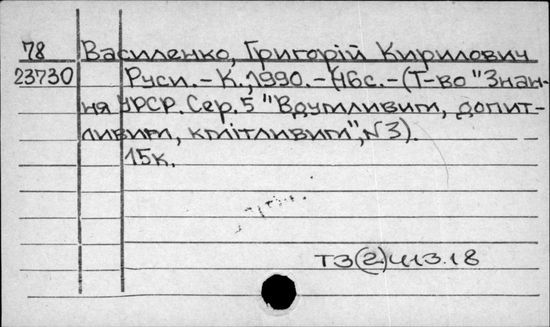 78 Василенко, Григорій Кирилович
23730 Руси. - К., 1990. - 46с. - (Т-во "Знан-
ня УРСР. Сер. 5 "Вдумливим, допит-
ливим, кмітливим", N3).
15к.
Т3(2)413.18